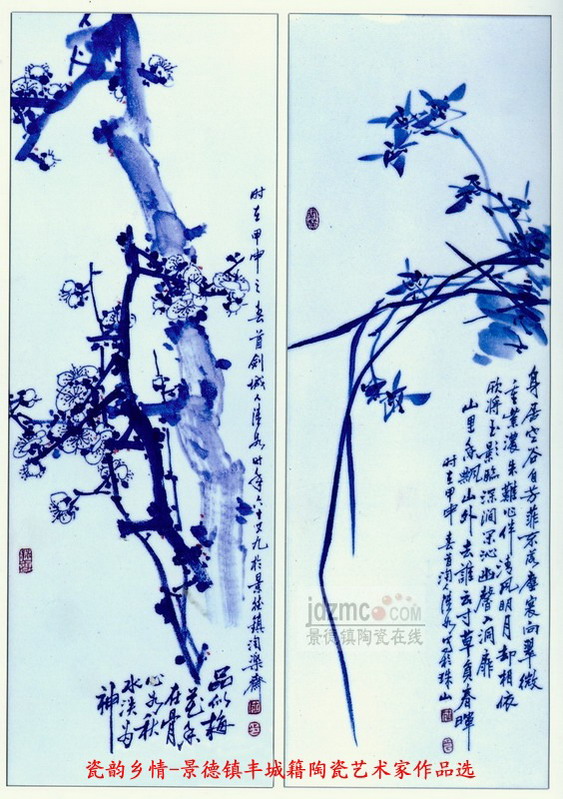 时在甲申之春首剑城人陸如时年六十又九於景德镇陶樂齋
品似梅
花香
在骨
心如秋
水淡为
神
身居空谷自芳菲不 向翠微
重葉濃朱難 伴清风明月却相依
欣将玉影臨深澗 沁幽馨入洞扉
山里香飘山外去誰云寸草負春暉
时在甲申春首陶人陸如写於珠山
jdzmc.COM
景德镇陶瓷在线
瓷韵乡情-景德镇丰城籍陶瓷艺术家作品选